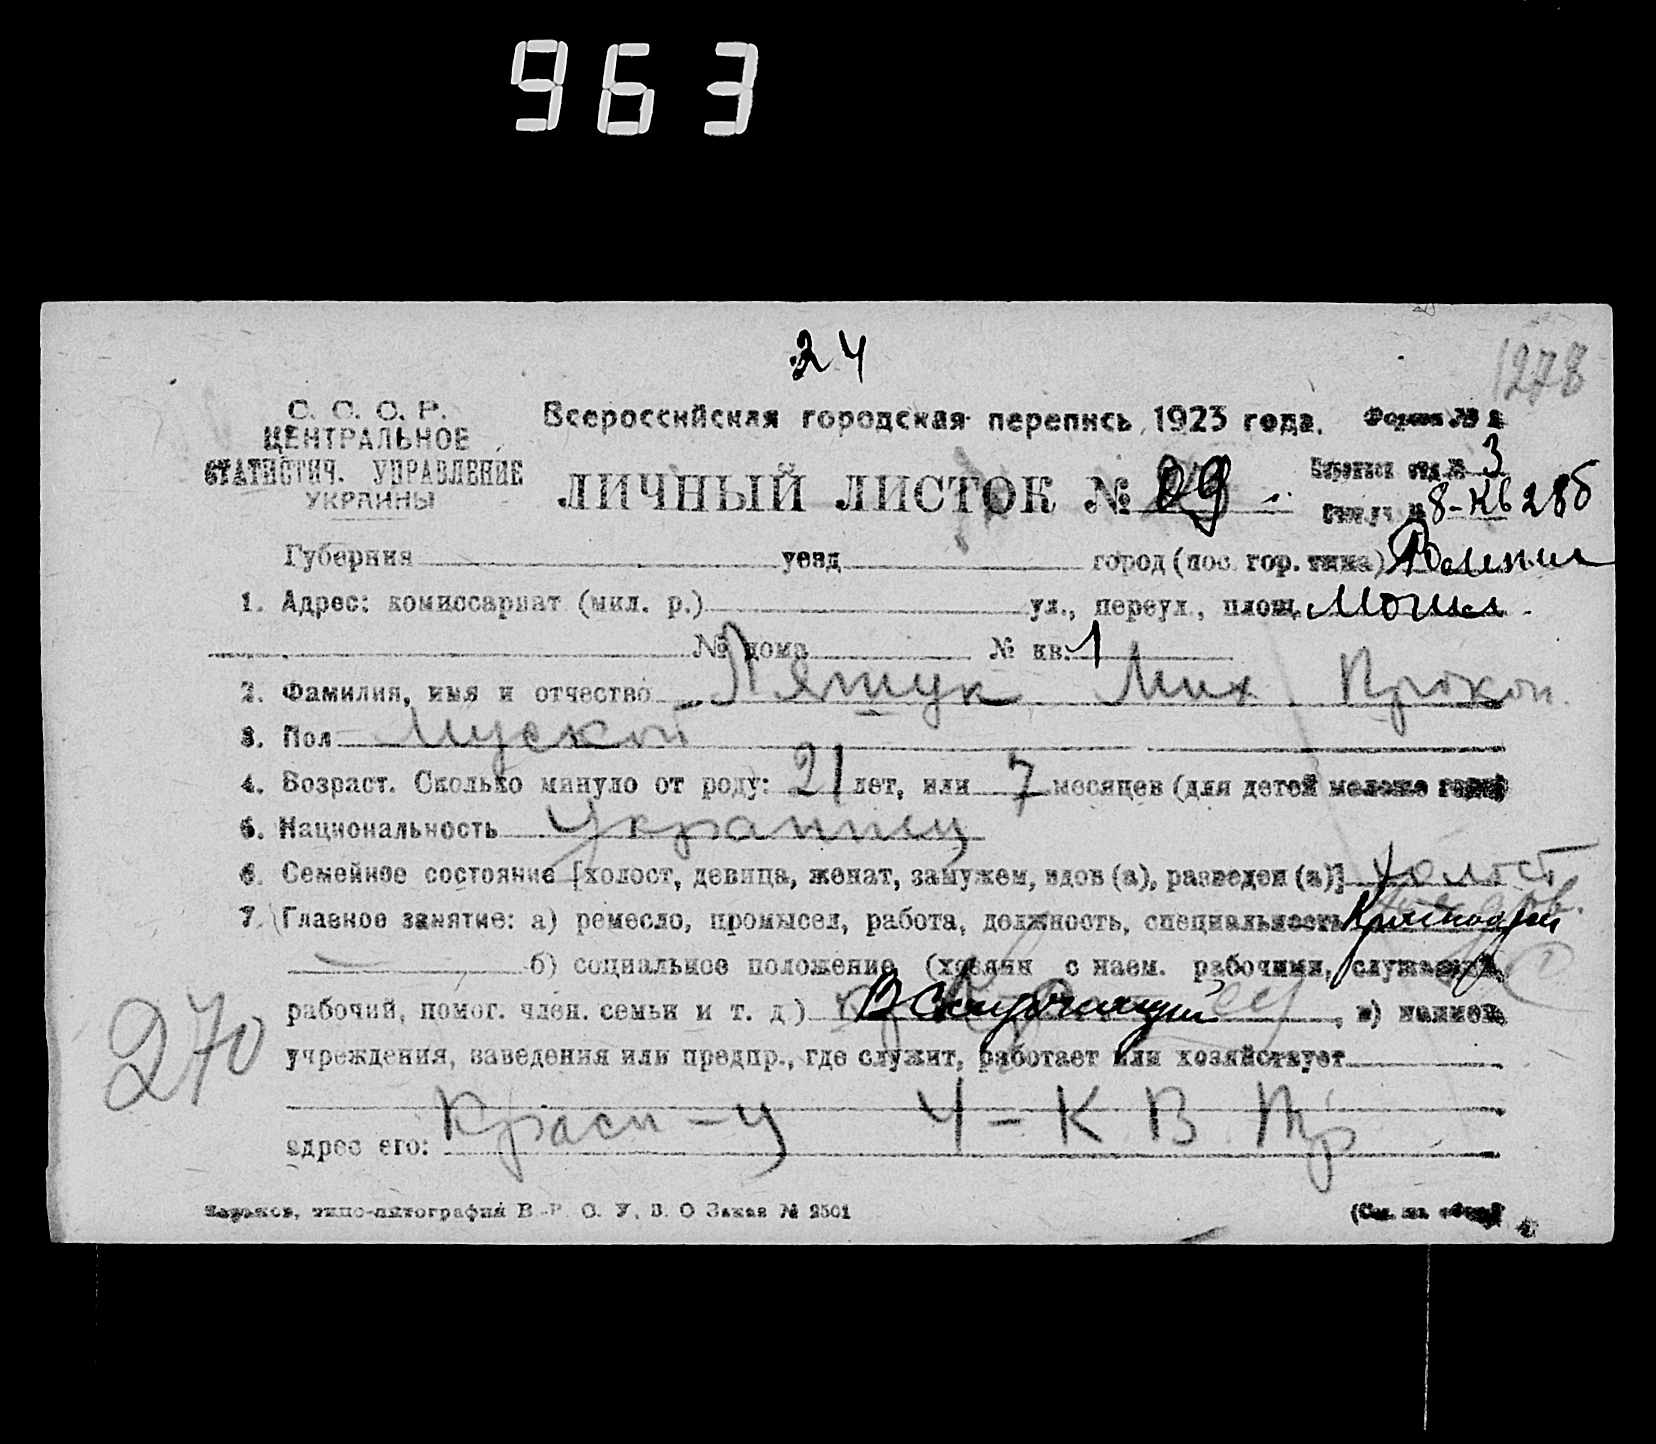 963
24
1278
С. С. С. Р.
ЦЕНТРАЛЬНОЕ
СТАТИСТИЧ. УПРАВЛЕНИЕ
УКРАИНЫ
Всероссийская городская перепись 1923 года.
Форма №
ЛИЧНЫЙ ЛИСТОК №
3
8-Кв 28б
Губерния уезд город (пос. гор. типа)
1. Адрес: комиссариат (мил. р.) ул., переул., площ.
№ дома № кв. 1
2. Фамилия, имя и отчество Ляшук Мих Прокоп.
3. Пол Муской
4. Возраст. Сколько минуло от роду: 21 лет, или 7 месяцев (для детей моложе года)
5. Национальность украинец
6. Семейное состояние [холост, девица, женат, замужем, вдов (а), разведен (а)] холост
7. Главное занятие: а) ремесло, промысел, работа, должность, специальность
б) социальное положение (хозяин с наем. рабочими, служащий,
рабочий, помог. член. семьи и т. д.) , в) наимен.
учреждения, заведения или предпр., где служит, работает или хозяйствует
Красн-у 4-К В Пр
адрес его:
Харьков, типо-литография В. Заказ № 2501
(См. на
270